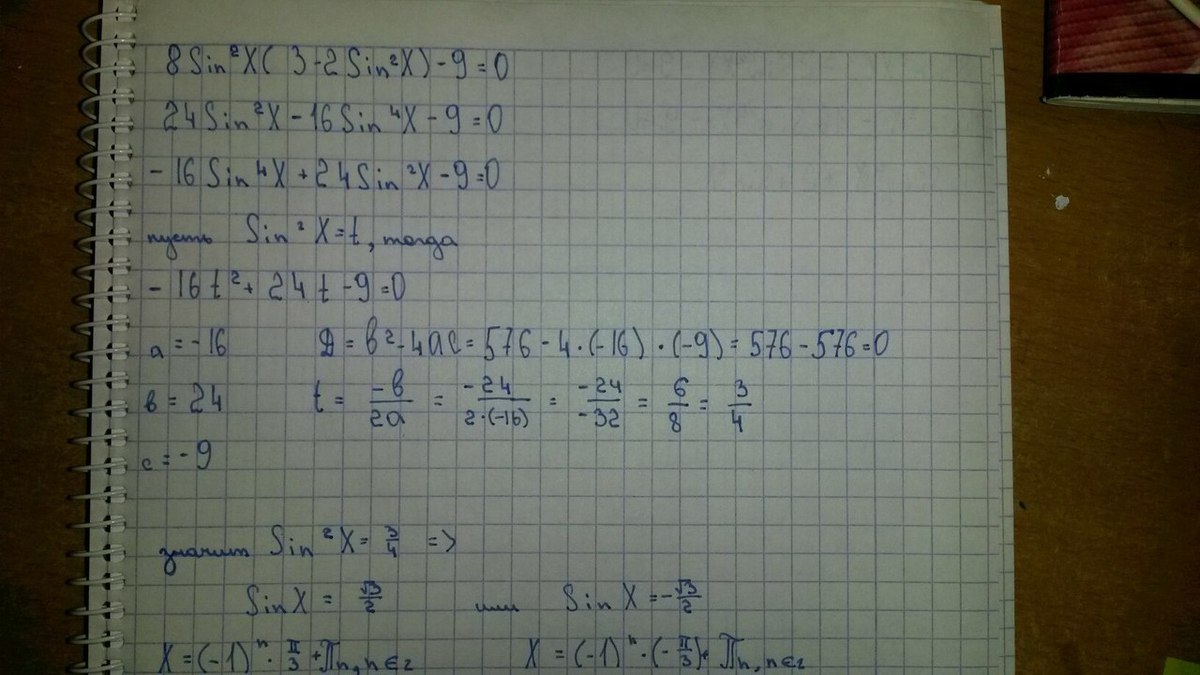 8Sin²X(3-2Sin²X)-9=0
24Sin²X-16Sin⁴X-9=0
-16Sin⁴X+24Sin²X-9=0
пусть Sin²X=t, тогда
-16t²+24t-9=0
a=-16 D=b²-4ac=576-4·(-16)·(-9)=576-576=0
b=24 t=-b/2a=-24/2·(-16)=-24/-32=6/8=3/4
c=-9
значит Sin²X=3/4 =>
SinX=√3/2 или SinX=-√3/2
X=(-1)ⁿ·π/3+πn, n∈z X=(-1)ⁿ·(-π/3)+πn, n∈z